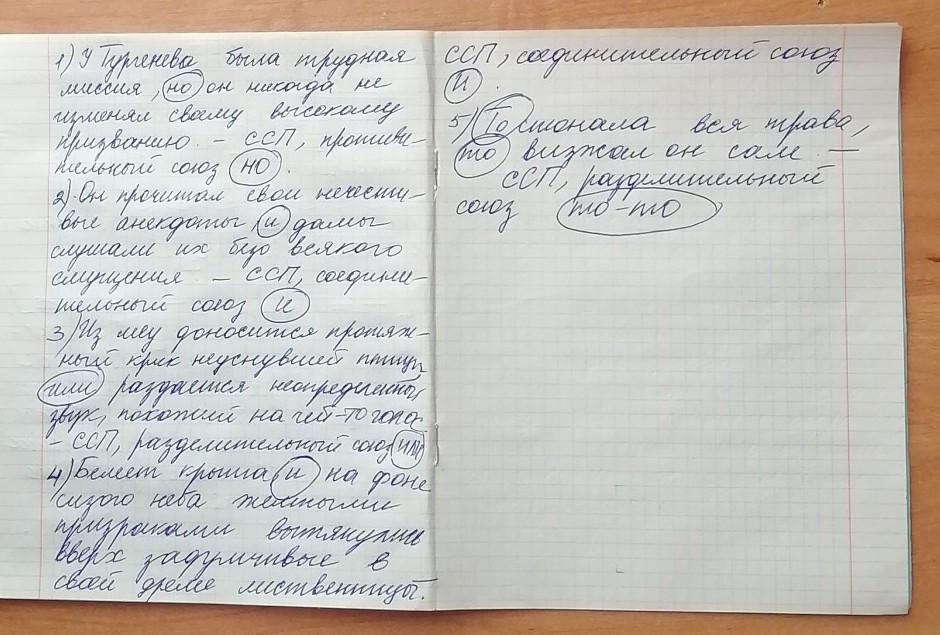 1) У Тургенева была трудная
миссия, но он никогда не
изменял своему высокому
призванию. - ССП, противи-
тельный союз но.
2) Он прочитал свои нечести-
вые анекдоты и дамы
слушали их безо всякого
смущения - ССП, соедини-
тельный союз и
3) Из лесу доносится протяж-
ный крик неуснувшей птицы
или раздается неопределенный
звук, похожий на чей-то голос
- ССП, разделительный союз или
4) Белеет крыша и на фоне
сизого неба желтыми
призраками вытянулись
вверх задумчивые в
своей дреме лиственницы.
ССП, соединительный союз
и.
5) То стонала вся трава,
то визжал он сам. -
ССП, разделительный
союз то-то.